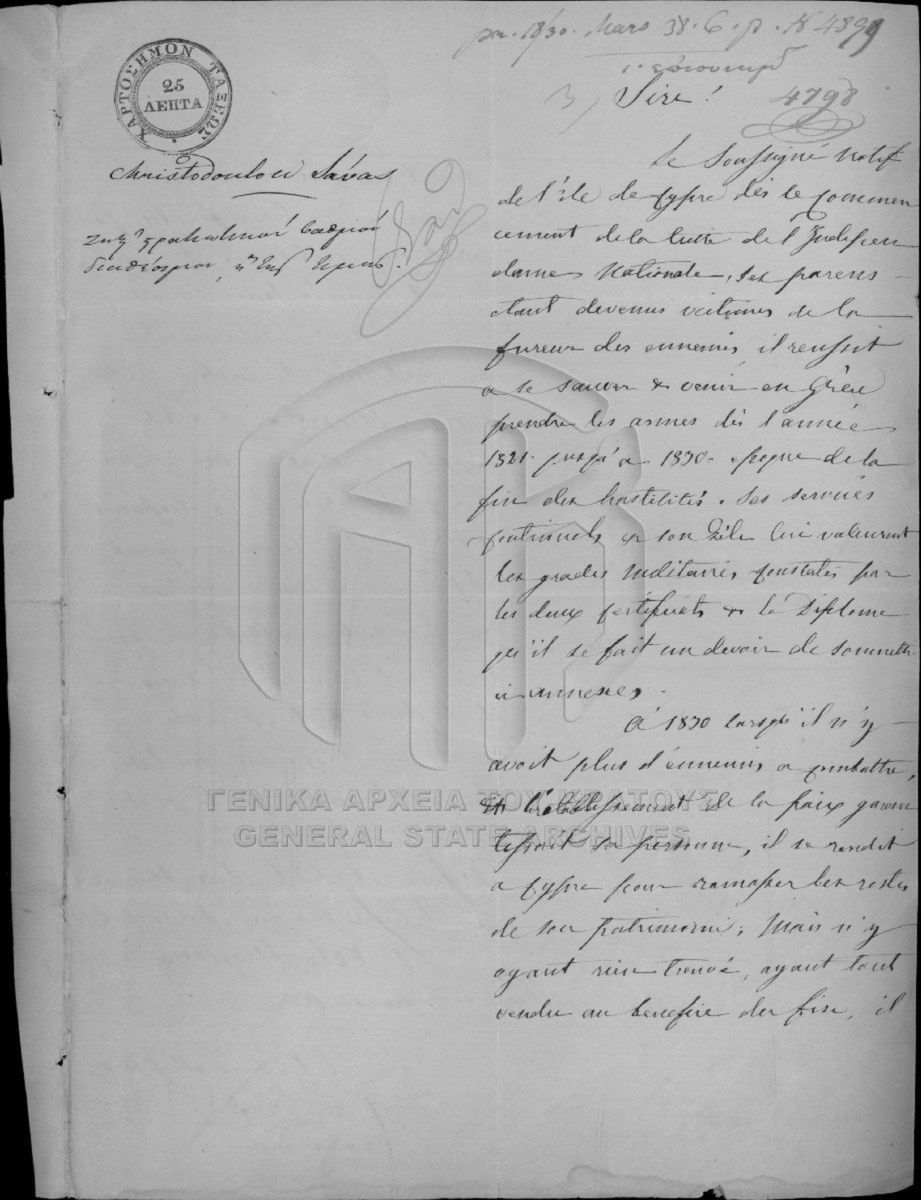 ΧΑΡΤΟΣΗΜΟΝ ΤΑΞΕΩΣ
25
ΛΕΠΤΑ
4899
Sire!
4798
Christodoulou Sávas
Le Soussigné Natif
de l'île de Cypre dès le commen
cement de la lutte de l'Indépen
dance Nationale, ses parens
étant devenus victimes de la
fureur des ennemis, il reussit
a se sauver & venir en Grèce
prendre les armes dès l'année
1821 jusqu'a 1830 epoque de la
fin des hostilités. Ses services
continuels & son Zèle lui valeurent
les grades militaires constatés par
les deux certificats & le Diplome
qu'il se fait un devoir de soumettre
ci annexés.
A 1830 lorsqu'il n'y
avoit plus d'ennemis a combattre,
et l'établissement de la paix garan
tissait sa personne, il se rendit
a Cypre pour ramasser les restes
de son patrimoine; Mais n'y
ayant rien trouvé, ayant tout
vendu au benefice du fisc, il
ΓΕΝΙΚΑ ΑΡΧΕΙΑ ΤΟΥ ΚΡΑΤΟΥΣ
GENERAL STATE ARCHIVES